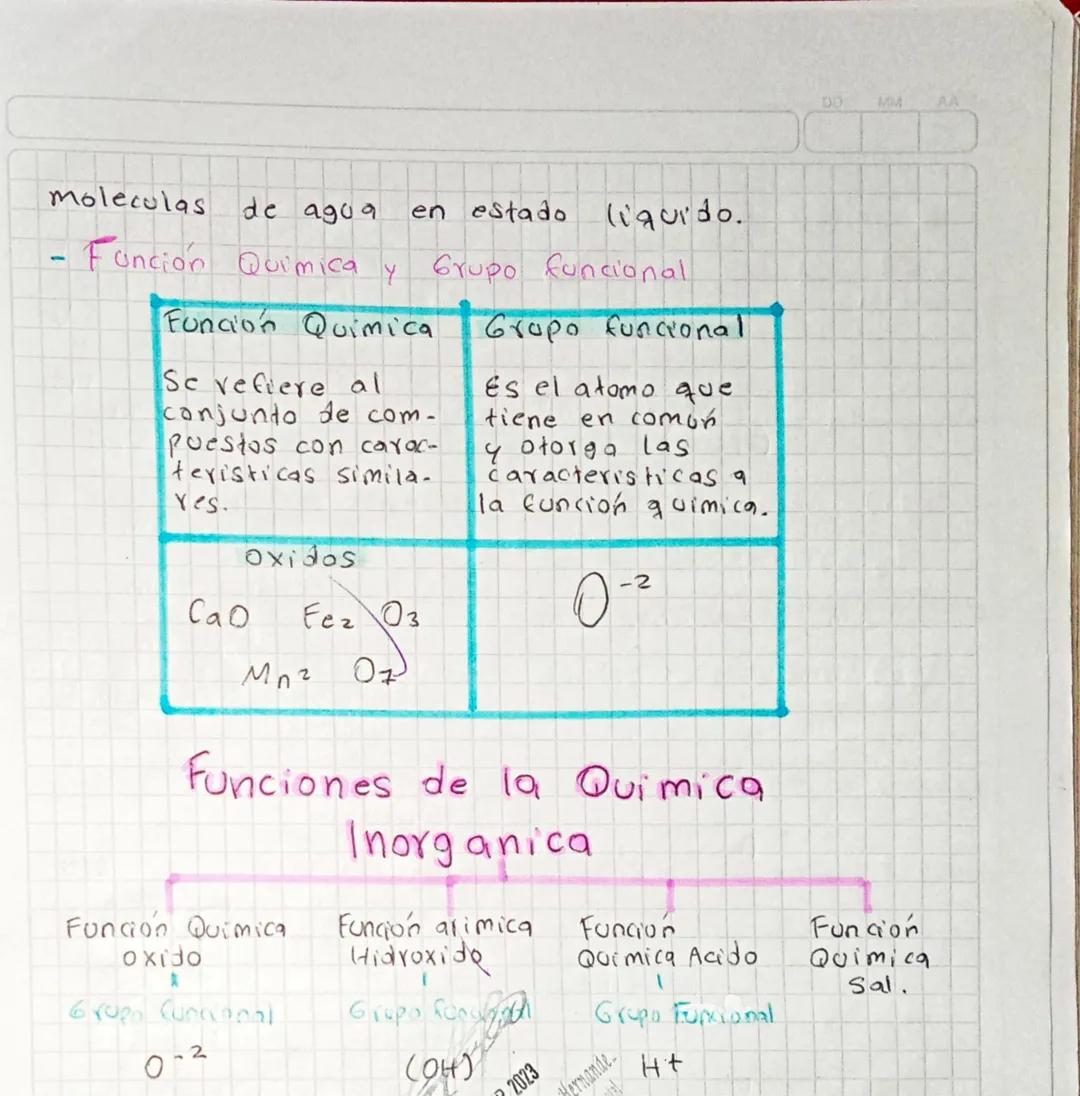 DD MM AA
moleculas de agua en estado liquido.
- Función Quimica y Grupo funcional
Función Quimica
Se refiere al
conjunto de com-
puestos con carac-
teristicas simila-
res.
Grupo funcional
Es el atomo que
tiene en común
y otorga las
caracteristicas a
la función quimica.
oxidos
CaO Fe2 O3
Mn2 O7
O-2
Funciones de la Quimica
Inorganica
Función Quimica
oxido
Grupo funcional
O-2
Función
Hidroxido
Grupo funcional
(OH)
Función
Quimica Acido
Grupo Funcional
H+
Función
Quimica
Sal.
2023